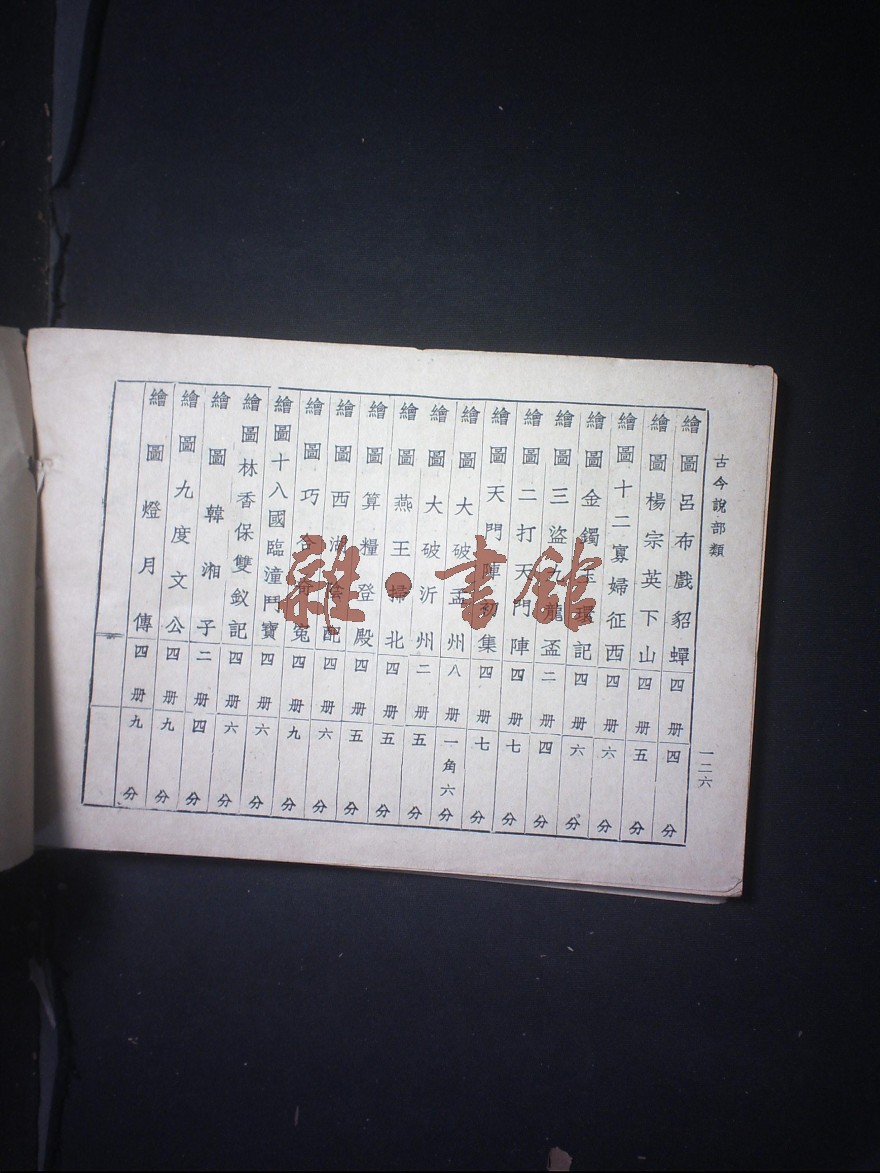 古今說部類
一二六
繪圖呂布戲貂蟬 四册 四分
繪圖楊宗英下山 四册 五分
繪圖十二寡婦征西 四册 六分
繪圖金鐲玉環記 四册 六分
繪圖三盜九龍盃 二册 四分
繪圖二打天門陣 四册 七分
繪圖天門陣初集 四册 七分
繪圖大破孟州 八册 一角六分
繪圖大破沂州 二册 五分
繪圖燕王掃北 四册 五分
繪圖算糧登殿 四册 五分
繪圖西湖陰配 四册 六分
繪圖巧合奇冤 四册 九分
繪圖十八國臨潼鬥寶 四册 六分
繪圖林香保雙釵記 四册 六分
繪圖韓湘子 二册 四分
繪圖九度文公 四册 九分
繪圖燈月傳 四册 九分
雜·書館